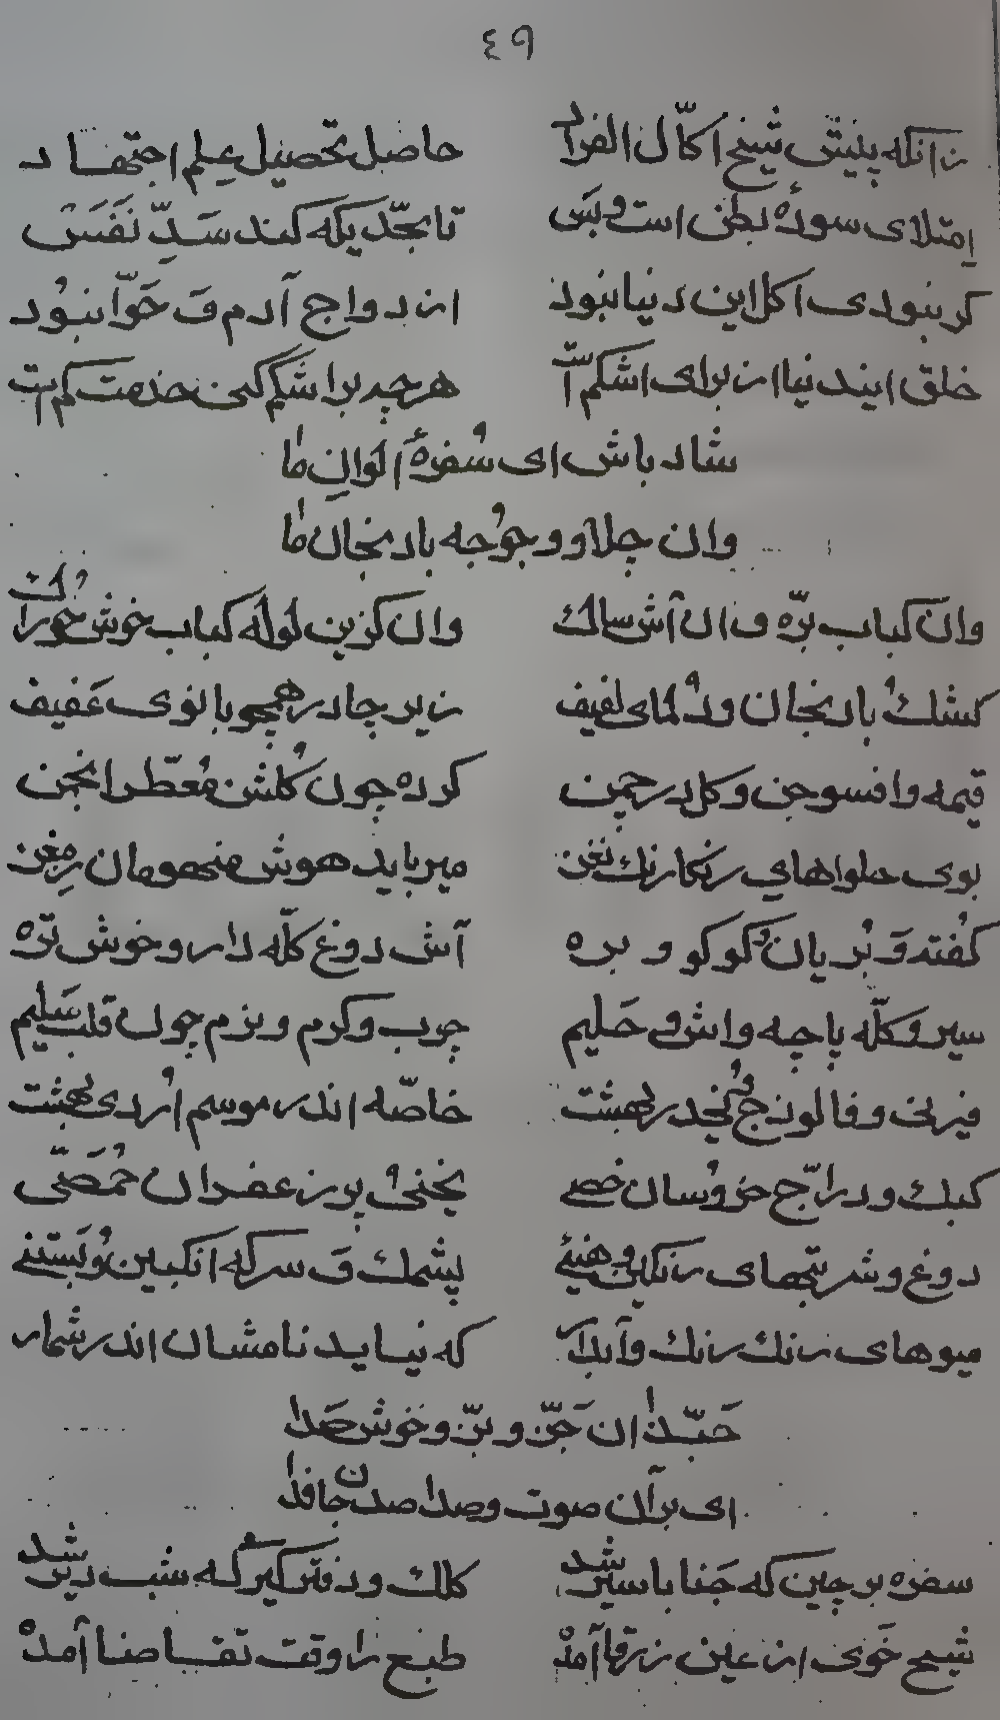 ٤٩
زانکه پیش شیخ اکّال الفراد حاصل تحصیل علم اجتهاد
اِمتلای سورهٔ بطن است و بَس تا بحّدیکه کند سَدِّ نَفَس
کر نبودی اکل این دنیا نبود ازدواج آدم وَ حَوّا نبوُد
خلق ایندنیا از برای اشکم است هرچه برا شکم کنی خدمت کم است
شاد باش ای سُفرهٔ اَلوانِ ما
وان چلاو و جوُجه بادنجان ما
وان کباب برّه وان آش ساک وان کزین لوله کباب خوش خُوراک
کشک بادنجان و دُلمای لفیف زیر چادر همچو بانوی عَفیف
قیمه وافسوجن و کل در چمن کرده چون کُلشن مُعطّر انجمن
بوی حلواهای رنکارنک نغن میرباید هوش منهومان زمغن
کُفته وَ بُریان و کوکو و بره آش دوغ کلّه دار و خوش تره
سیر و کلّه پاچه و اش و حَلیم چرب و کرم و نرم چون قلب سَلیم
فیرنی و فالوذج کُنجد بهشت خاصّه اندر موسم اُردی بهشت
کبک و درّاج خروُسان خصے یخنیُ پر زعفران حُمَّصَّی
دوغ و شربتهای رنکین و هنیئ پشمک وَ سرکه انکبین وُ بَستنے
میوهای رنک رنک و آبدار که نیاید نامشان اندر شمار
حَبّذا ان جَنّ و بنّ و خوش صَدا
ای بر آن صوت و صدا صد جان فدا
سفره برچین که جَنابا سیر شد کلک و دفتر کیر که شب دیر شد
شیخ خَوی از عین زرقا آمده طبع را وقت تقاضا آمده